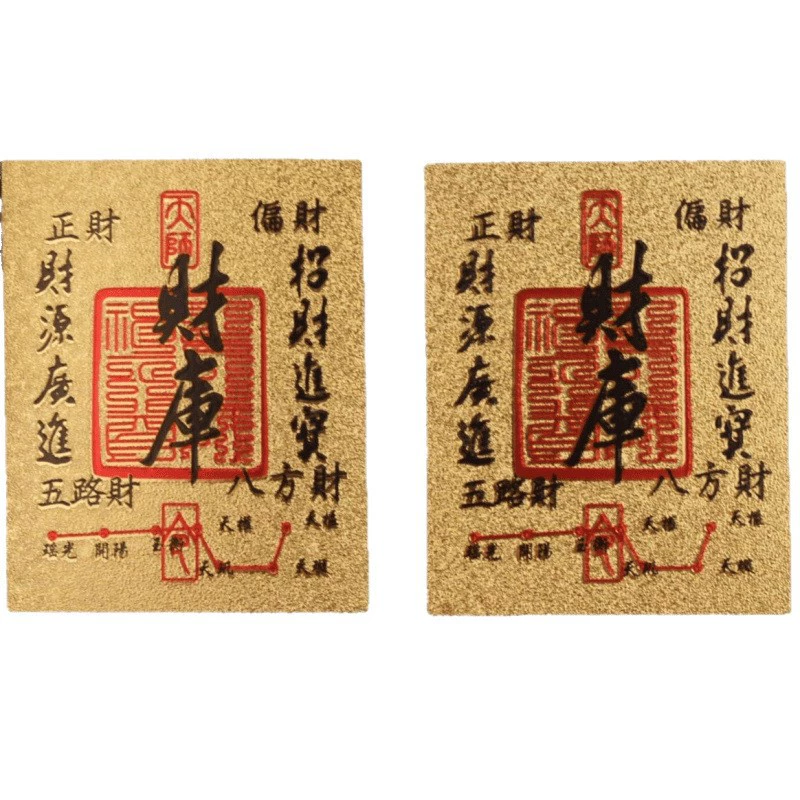 天師
正財
偏財
財庫
招財進寶
財源廣進
五路財
八方財
令
開陽
玉衡
天權
天師
正財
偏財
財庫
招財進寶
財源廣進
五路財
八方財
令
開陽
玉衡
天權